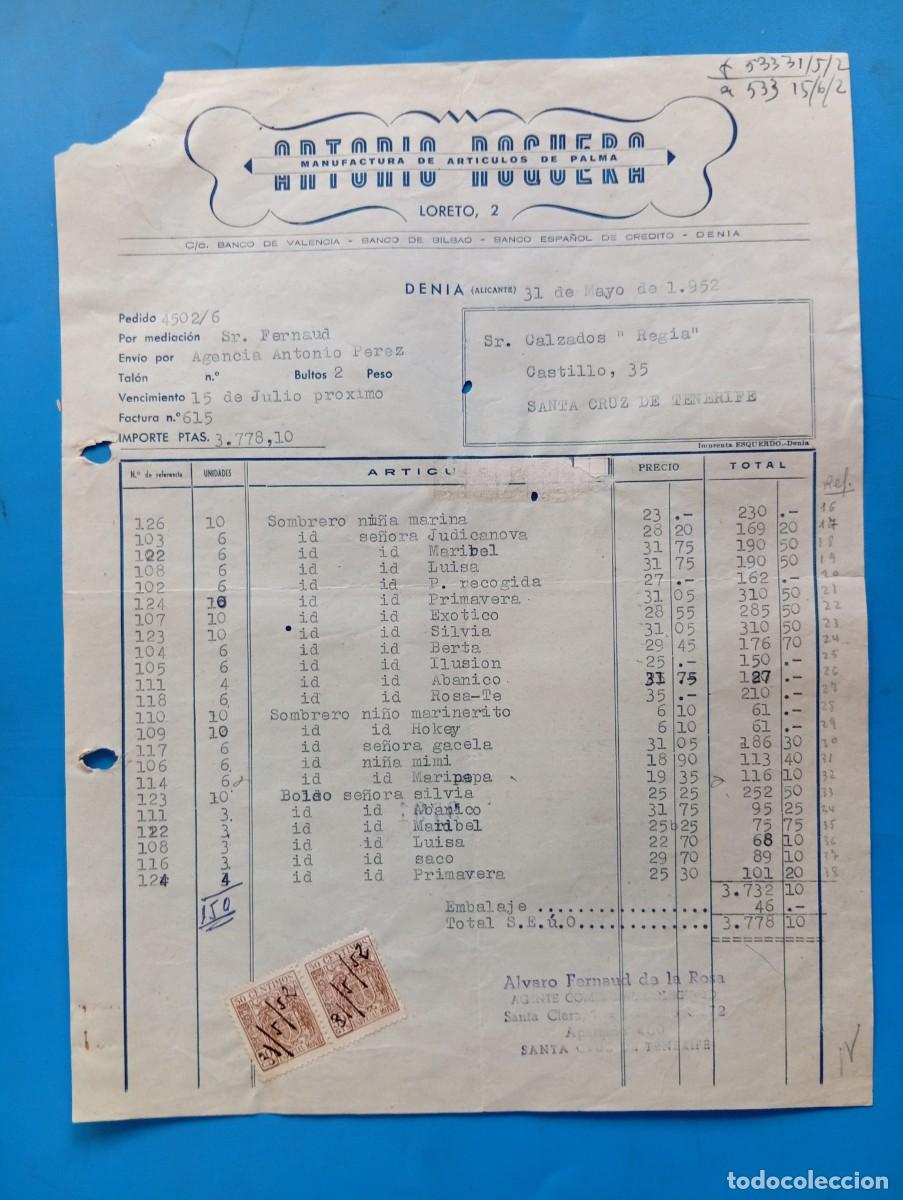 533 31/5/2
a 533 15/6/2
ANTONIO NOGUERA
MANUFACTURA DE ARTICULOS DE PALMA
LORETO, 2
C/c. BANCO DE VALENCIA - BANCO DE BILBAO - BANCO ESPAÑOL DE CREDITO - DENIA
DENIA (ALICANTE) 31 de Mayo de 1.952
Pedido 4502/6
Por mediación Sr. Fernaud
Envío por Agencia Antonio Perez
Talón n.º Bultos 2 Peso
Vencimiento 15 de Julio proximo
Factura n.º 615
IMPORTE PTAS. 3.778,10
Sr. Calzados " Regia"
Castillo, 35
SANTA CRUZ DE TENERIFE
Imprenta ESQUERDO.-Denia
N.º de referencia UNIDADES ARTICU PRECIO TOTAL Ref.
126 10 Sombrero niña marina 23 .- 230 .- 16
103 6 id señora Judicanova 28 20 169 20 17
122 6 id id Maribel 31 75 190 50 18
108 6 id id Luisa 31 75 190 50 19
102 6 id id P. recogida 27 .- 162 .- 20
124 10 id id Primavera 31 05 310 50 21
107 10 id id Exotico 28 55 285 50 22
123 10 id id Silvia 31 05 310 50 23
104 6 id id Berta 29 45 176 70 24
105 6 id id Ilusion 25 .- 150 .- 25
111 4 id id Abanico 31 75 127 .- 26
118 6 id id Rosa-Te 35 .- 210 .- 27
110 10 Sombrero niño marinerito 6 10 61 .- 28
109 10 id id Hokey 6 10 61 .- 29
117 6 id señora gacela 31 05 186 30 30
106 6 id niña mimi 18 90 113 40 31
114 6 id id Maripepa 19 35 116 10 32
123 10 Bolso señora silvia 25 25 252 50 33
111 3 id id Abanico 31 75 95 25 34
122 3 id id Maribel 25 25 75 75 35
108 3 id id Luisa 22 70 68 10 36
116 3 id id saco 29 70 89 10 37
124 4 id id Primavera 25 30 101 20 38
150
3.732 10
Embalaje .............. 46 .-
Total S.E.ú.O........... 3.778 10
50 CENTIMOS 50 CENTIMOS
31/5/52 31/5/52
Alvaro Fernaud de la Rosa
AGENTE
Santa Clara,
SANTA TENERIFE
todocoleccion